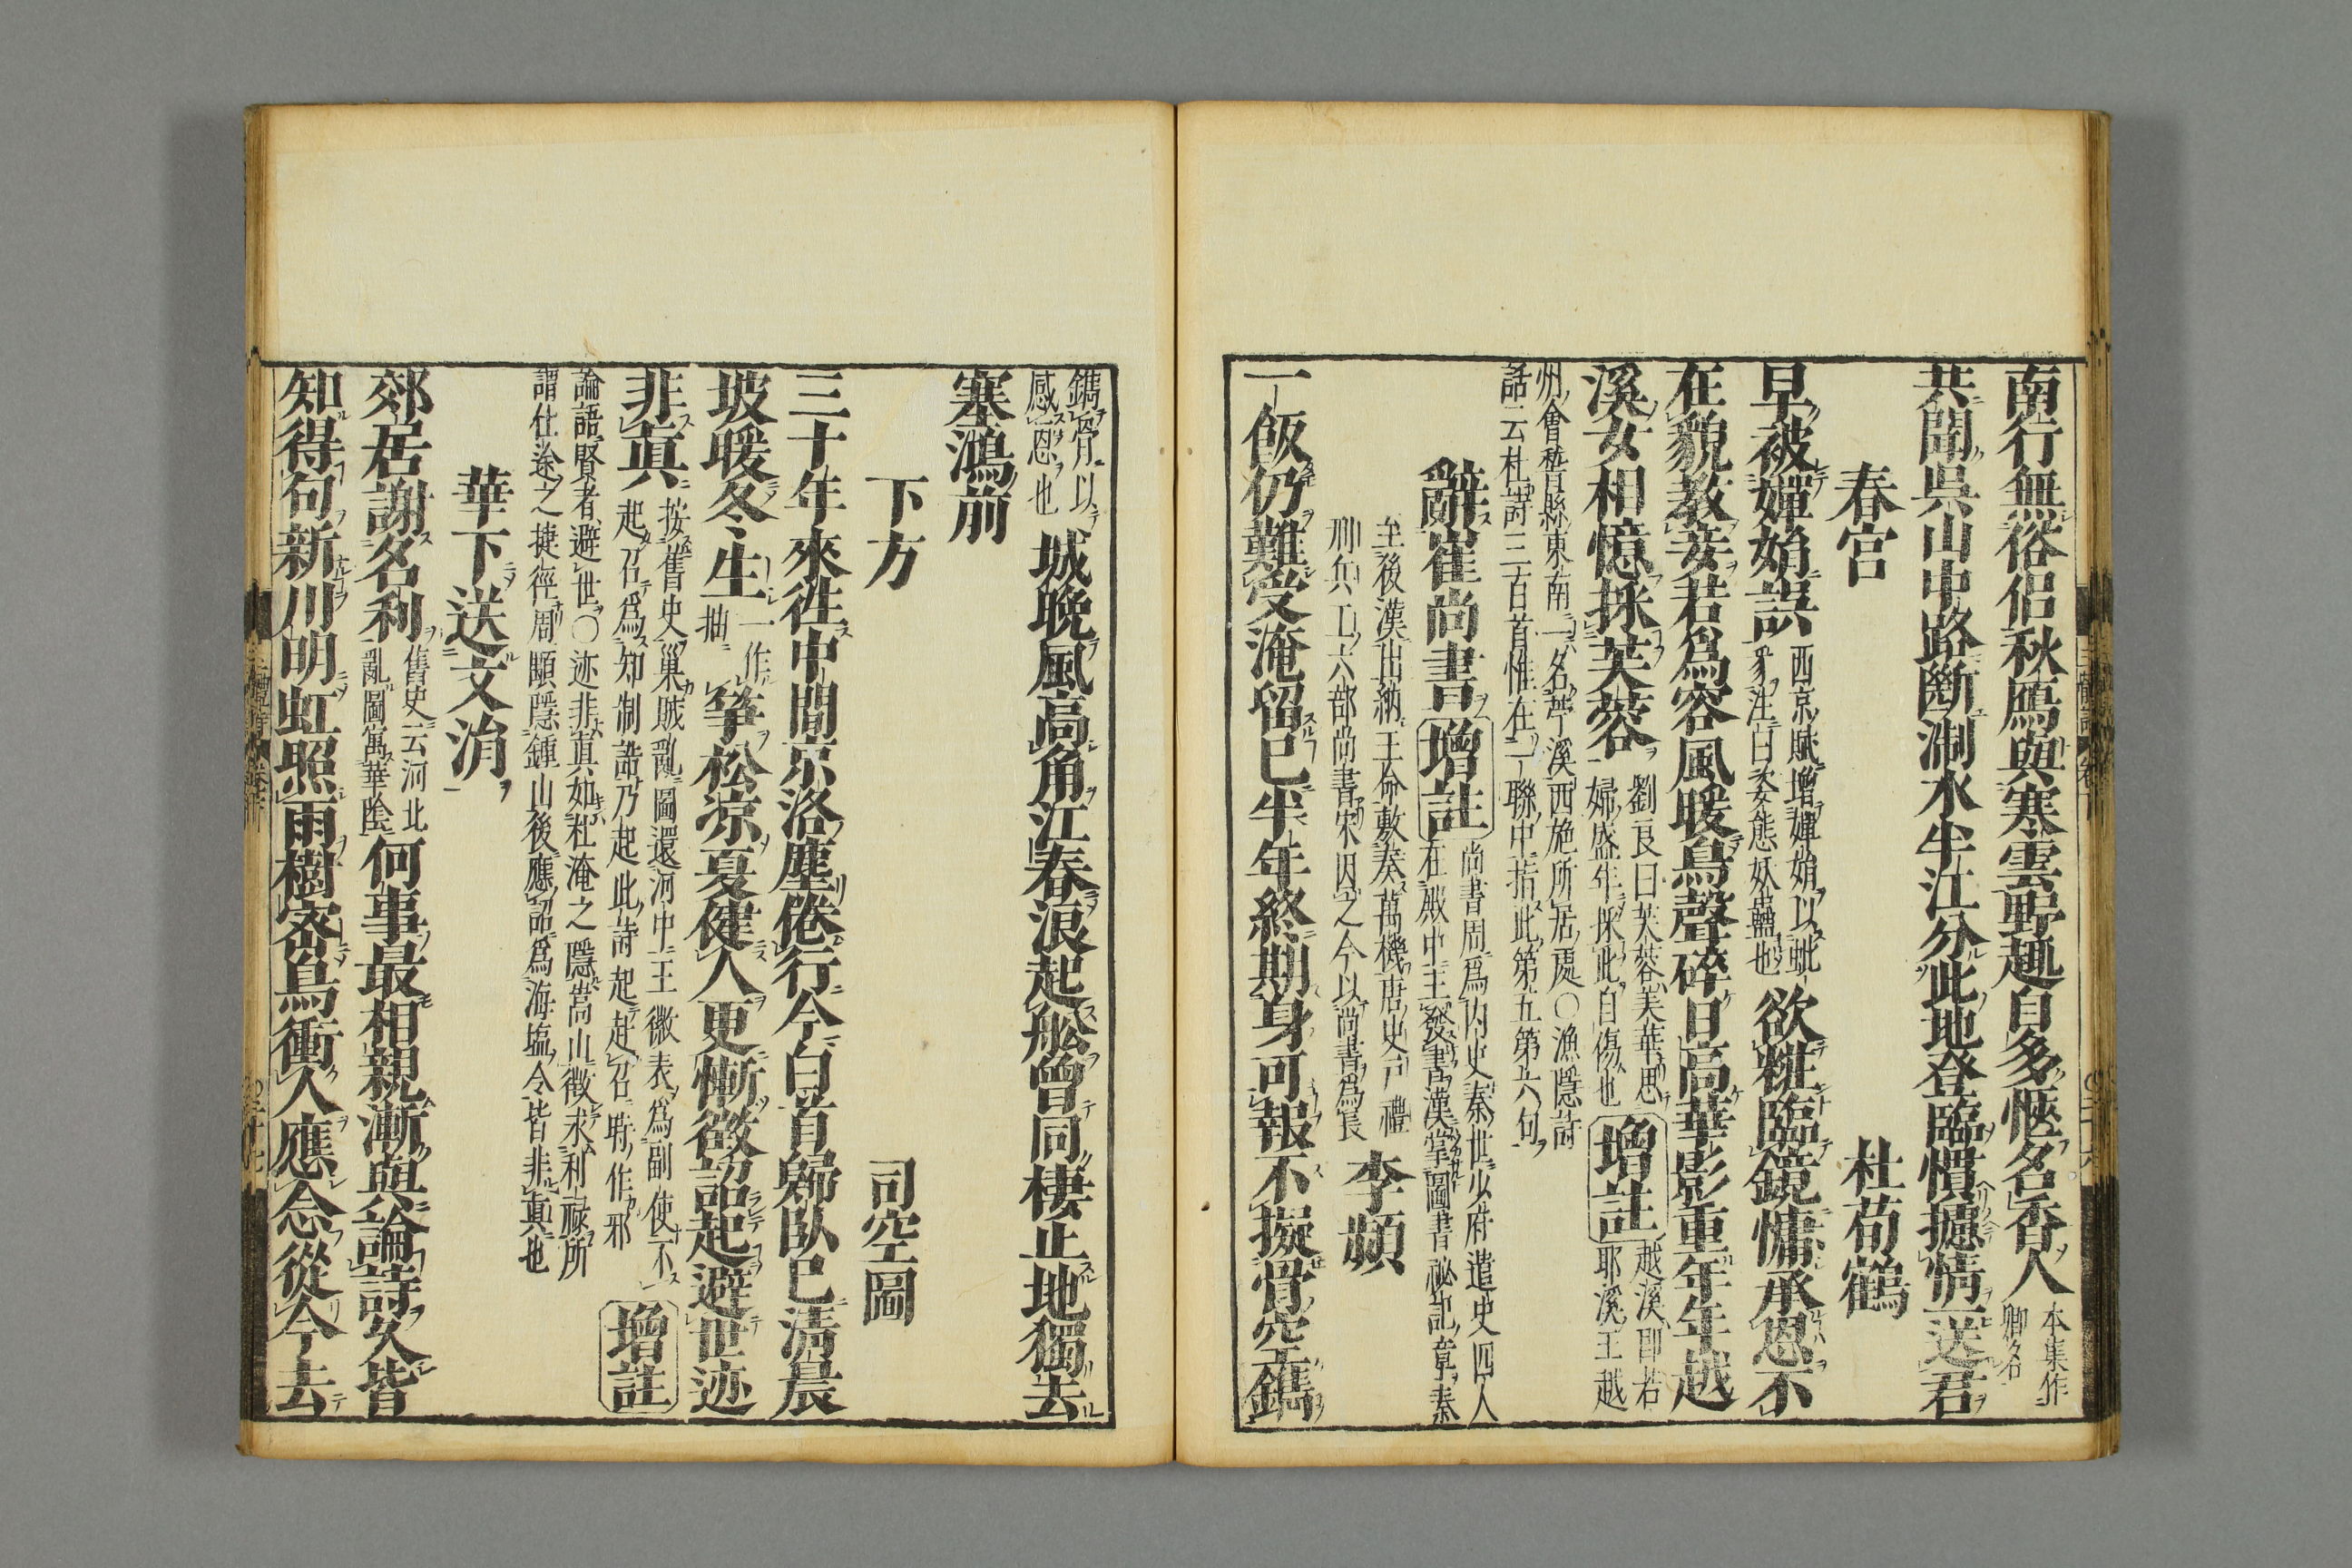 南行無俗侶秋鴈與寒雲野趣自多愜名香人本集作
卿名
共聞吳山中路斷淛水半江分此地登臨慣攄情一送君
春宮　杜荀鶴
早被嬋娟誤西京賦增嬋娟以眦
豸注曰姿態妖蠱也欲粧臨鏡慵承恩不
在貌教妾若爲容風暖鳥聲碎日高華影重年年越
溪女相憶採芙蓉劉良曰芙蓉美華思
婦盛年採此自傷也增註越溪即若
耶溪王越
州會稽縣東南一名苧溪西施所居處〇漁隱詩
話云杜詩三百首惟在一聯中指此第五第六句
辭崔尚書增註尚書周爲内史秦世少府遣史四人
在殿中主發書漢掌圖書祕記章秦
至後漢出納王命敷奏萬機唐史戸禮
刑兵工六部尚書宋因之今以尚書爲長李頻
一飯仍難受淹留已半年終期身可報不擬骨空鐫
鐫骨以
感恩也城晚風高角江春浪起舩曾同棲止地獨去
塞鴻前
下方　司空圖
三十年來往中間京洛塵倦行今白首歸臥已清晨
坡暖冬生一作
抽筝松凉夏健人更慚徵詔起避世迹
非真按舊史巢賊亂圖還河中王徽表爲副使不
起召爲知制誥乃起此詩起赴召時作邪增註
論語賢者避世〇迹非真如杜淹之隱嵩山徵求利祿所
謂仕途之捷徑周顒隱鍾山後應詔爲海塩令皆非真也
華下送文涓
郊居謝名利舊史云河北
亂圖寓華陰何事最相親漸與論詩久皆
知得句新川明虹照雨樹密鳥衝人應念從今去